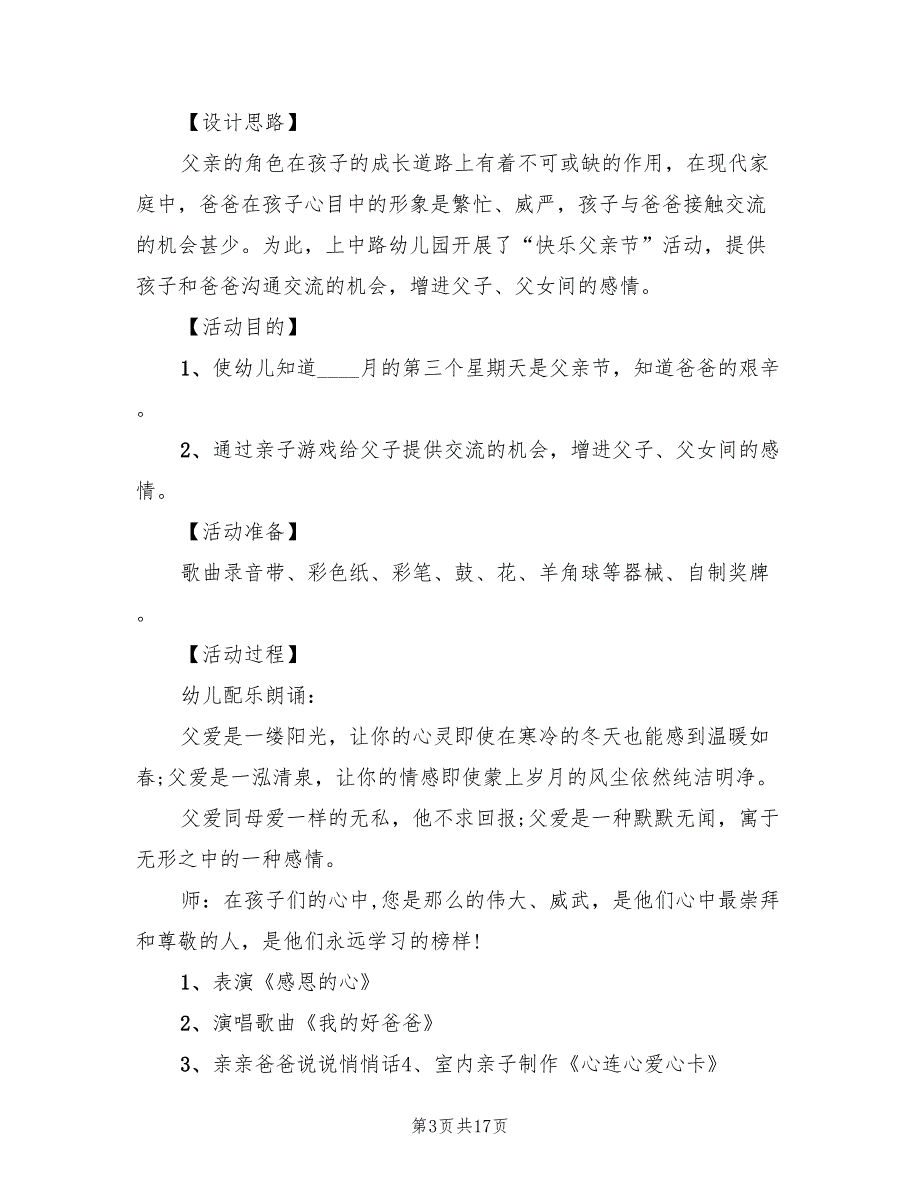 【设计思路】
父亲的角色在孩子的成长道路上有着不可或缺的作用，在现代家
庭中，爸爸在孩子心目中的形象是繁忙、威严，孩子与爸爸接触交流
的机会甚少。为此，上中路幼儿园开展了“快乐父亲节”活动，提供
孩子和爸爸沟通交流的机会，增进父子、父女间的感情。
【活动目的】
1、使幼儿知道____月的第三个星期天是父亲节，知道爸爸的艰辛
。
2、通过亲子游戏给父子提供交流的机会，增进父子、父女间的感
情。
【活动准备】
歌曲录音带、彩色纸、彩笔、鼓、花、羊角球等器械、自制奖牌
。
【活动过程】
幼儿配乐朗诵：
父爱是一缕阳光，让你的心灵即使在寒冷的冬天也能感到温暖如
春;父爱是一泓清泉，让你的情感即使蒙上岁月的风尘依然纯洁明净。
父爱同母爱一样的无私，他不求回报;父爱是一种默默无闻，寓于
无形之中的一种感情。
师：在孩子们的心中,您是那么的伟大、威武，是他们心中最崇拜
和尊敬的人，是他们永远学习的榜样!
1、表演《感恩的心》
2、演唱歌曲《我的好爸爸》
3、亲亲爸爸说说悄悄话4、室内亲子制作《心连心爱心卡》
第3页共17页